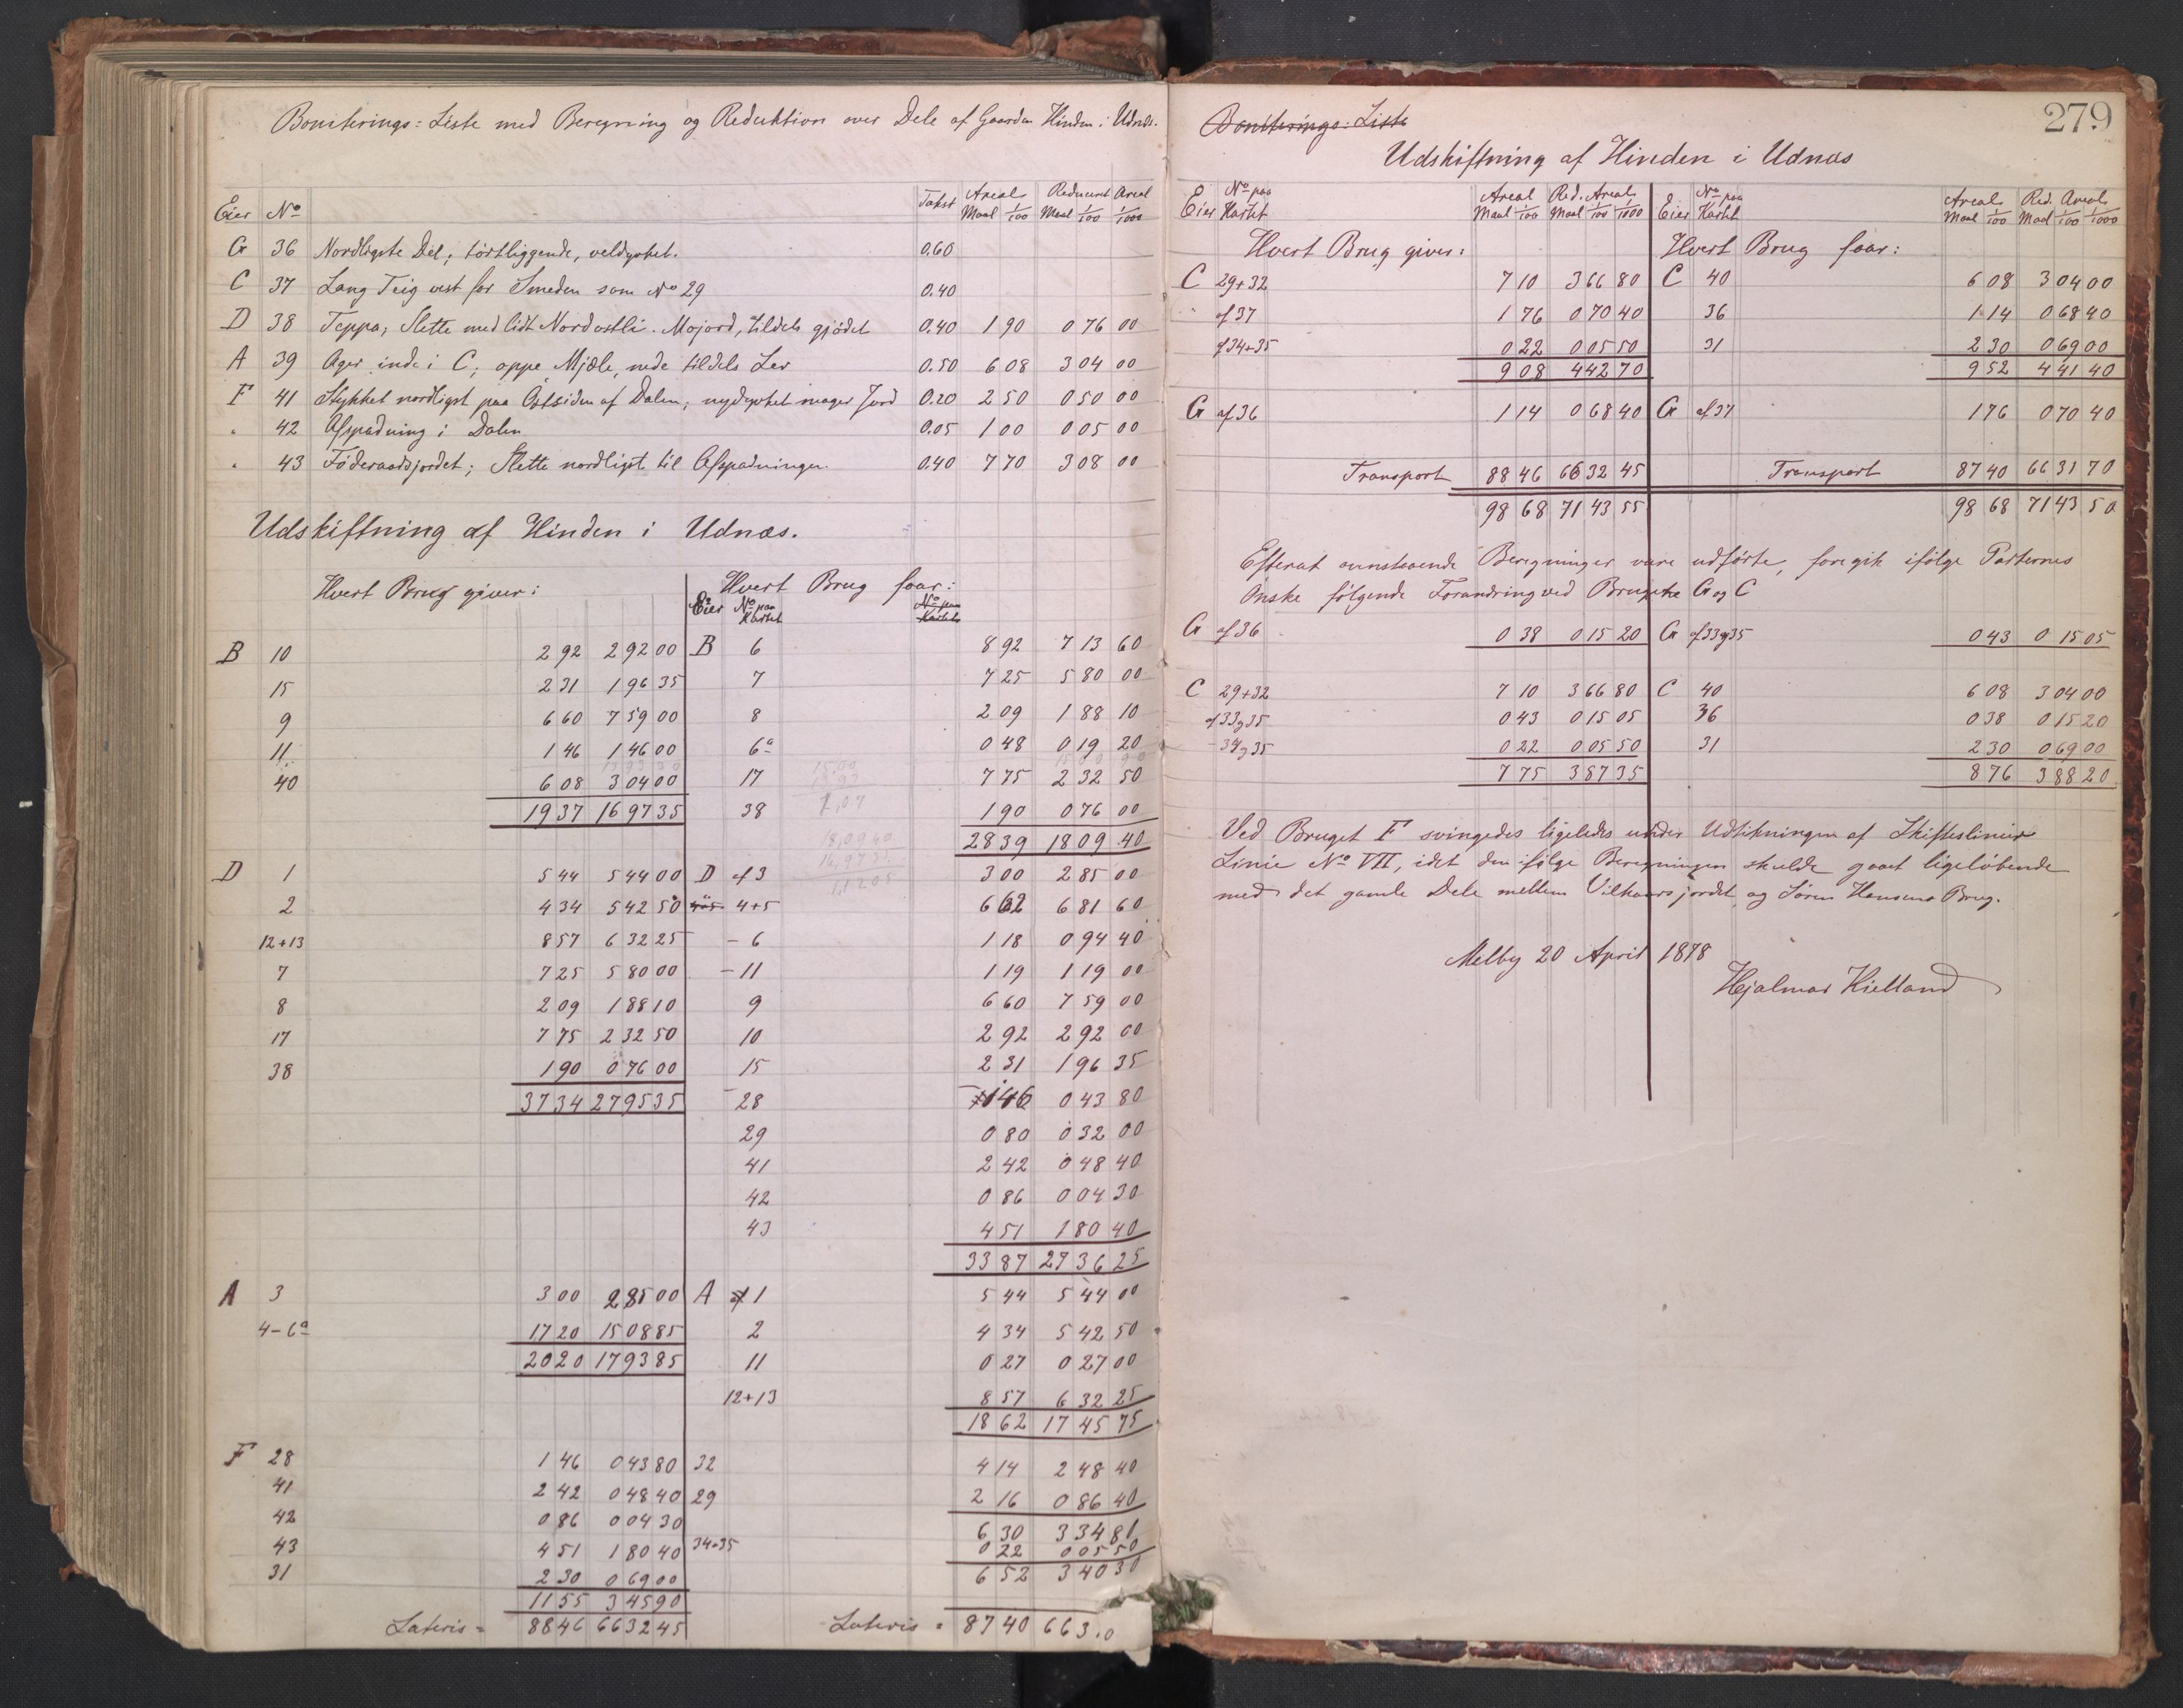 Boniterings-Liste med Beregning og Reduktion over Dele af Gaarden Hinden i Udnæs.
Eier No Takst Areal Maal 1/100 Reduceret Areal Maal 1/100 1/1000
G 36 Nordligste Del; törtliggende, veldyrket. 0.60
C 37 Lang Teig vest for Smeden som No 29 0.40
D 38 Teppa; Slette med lidt Nordostli. Mojord, tildels gjödet 0.40 1 90 0 76 00
A 39 Ager inde i C; oppe Mjæle, nede tildels Ler 0.50 6 08 3 04 00
F 41 Stykket nordligst paa Östsiden af Dalen; nydyrket mager Jord 0.20 2 50 0 50 00
" 42 Afspadning i Dalen 0.05 1 00 0 05 00
" 43 Föderaadsjordet; Slette nordligst til Afspadningen. 0.40 7 70 3 08 00
Udskiftning af Hinden i Udnæs.
Hvert Brug giver: Hvert Brug faar:
Eier No paa Kartet No paa Kartet
B 10 2 92 2 92 00 B 6 8 92 7 13 60
15 2 31 1 96 35 7 7 25 5 80 00
9 6 60 7 59 00 8 2 09 1 88 10
11 1 46 1 46 00 6a 0 48 0 19 20
40 6 08 3 04 00 17 7 75 2 32 50
19 37 16 97 35 38 1 90 0 76 00
28 39 18 09 40
D 1 5 44 5 44 00 D af 3 3 00 2 85 00
2 4 34 5 42 50 4+5 6 62 6 81 60
12+13 8 57 6 32 25 - 6 1 18 0 94 40
7 7 25 5 80 00 - 11 1 19 1 19 00
8 2 09 1 88 10 9 6 60 7 59 00
17 7 75 2 32 50 10 2 92 2 92 00
38 1 90 0 76 00 15 2 31 1 96 35
37 34 27 95 35 28 1 46 0 43 80
29 0 80 0 32 00
41 2 42 0 48 40
42 0 86 0 04 30
43 4 51 1 80 40
33 87 27 36 25
A 3 3 00 2 85 00 A af 1 5 44 5 44 00
4-6a 17 20 15 08 85 2 4 34 5 42 50
20 20 17 93 85 11 0 27 0 27 00
12+13 8 57 6 32 25
18 62 17 45 75
F 28 1 46 0 43 80 32 4 14 2 48 40
41 2 42 0 48 40 29 2 16 0 86 40
42 0 86 0 04 30 6 30 3 34 81
43 4 51 1 80 40 34+35 0 22 0 05 50
31 2 30 0 69 00 6 52 3 40 30
11 55 3 45 90
Lateris = 88 46 66 32 45 Lateris = 87 40 66 3
279
Boniterings-Liste
Udskiftning af Hinden i Udnæs
Eier No paa Kartet Areal Maal 1/100 Red. Areal Maal 1/100 1/1000 Eier No paa Kartet Areal Maal 1/100 Red. Areal Maal 1/100 1/1000
Hvert Brug giver: Hvert Brug faar:
C 29+32 7 10 3 66 80 C 40 6 08 3 04 00
" af 37 1 76 0 70 40 36 1 14 0 68 40
af 34+35 0 22 0 05 50 31 2 30 0 69 00
9 08 4 42 70 9 52 4 41 40
G af 36 1 14 0 68 40 G af 37 1 76 0 70 40
Transport 88 46 66 32 45 Transport 87 40 66 31 70
98 68 71 43 55 98 68 71 43 50
Efterat ovenstaaende Beregninger vare udförte, foregik ifölge Parternes
Önske fölgende Forandring ved Brugene G og C
G af 36 0 38 0 15 20 G af 33 og 35 0 43 0 15 05
C 29+32 7 10 3 66 80 C 40 6 08 3 04 00
af 33 og 35 0 43 0 15 05 36 0 38 0 15 20
- 34 og 35 0 22 0 05 50 31 2 30 0 69 00
7 75 3 87 35 8 76 3 88 20
Ved Bruget F svingedes ligeledes under Udstikningen af Skifteslinier
Linie No VII, idet den ifölge Beregningen skulde gaaet ligelöbende
med det gamle Dele mellem Vilkaarsjordet og Sören Hansens Brug.
Melby 20 April 1878
Hjalmar Kielland